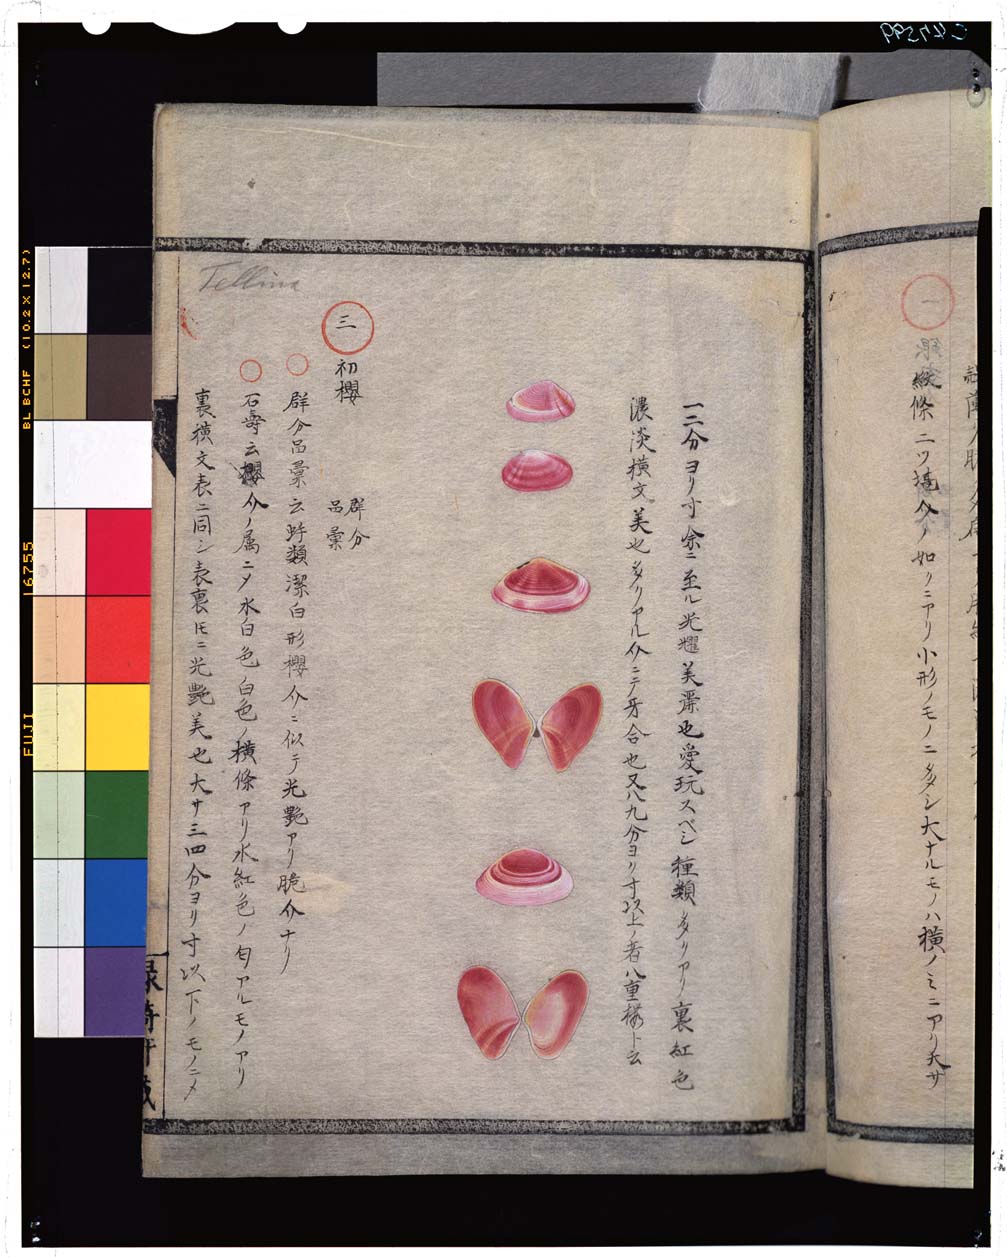 一二分ヨリ寸余ニ至ル光耀美澤也愛玩スベシ種類多クアリ裏紅色
濃淡横文美也多クアル介ニテ牙合也又八九分ヨリ寸以上ノ者八重櫻ト云
三 初櫻 群分品彙
群分品彙云蚶類潔白形櫻介ニ似テ光艶アリ脆介ナリ
石壽云櫻介ノ属ニメ水白色白色ノ横條アリ水紅色ノ匂アルモノアリ
裏横文表ニ同シ表裏圧ニ光艶美也大サ三四分ヨリ寸以下ノモノニメ
Tellina
一
縦條ニツ
介ノ如クニアリ小形ノモノニ多シ大ナルモノハ横ノミニアリ大サ
BL BCHF (10.2 X 12.7)
16755
FUJI
C47599